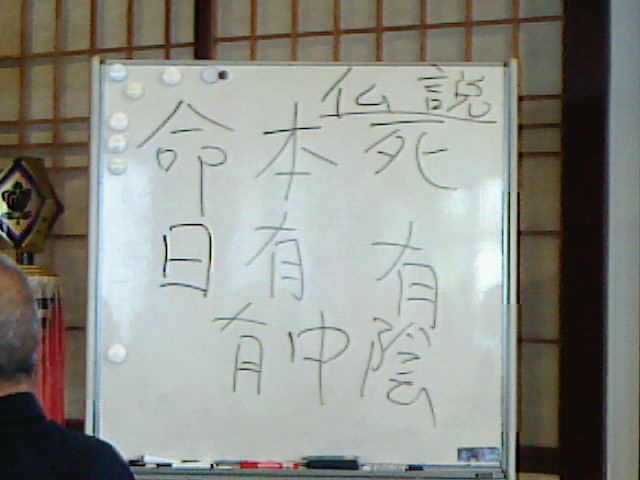 仏説
死有
本有
命日
有中陰